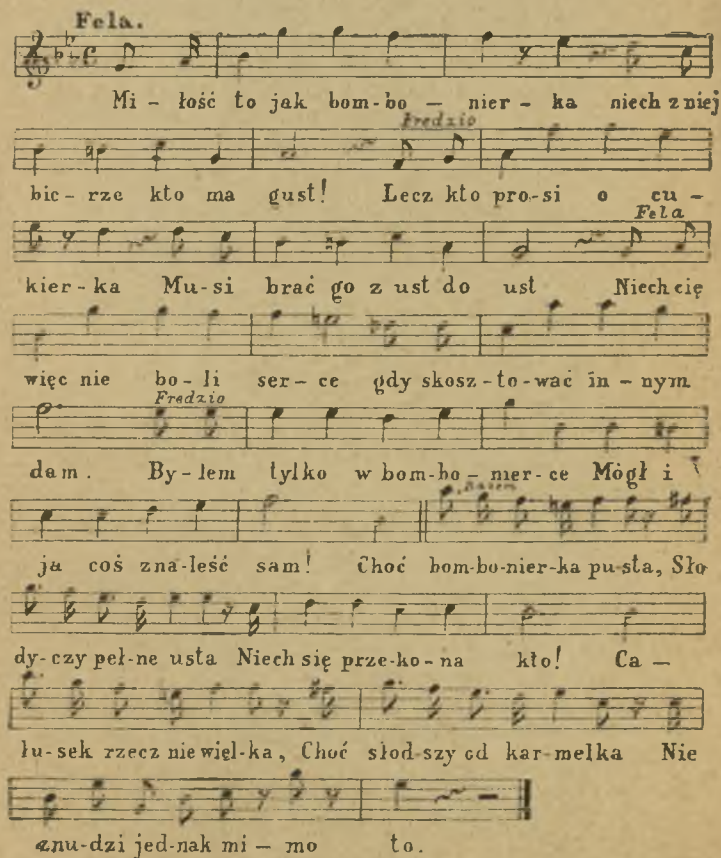 Fela.
Mi - łość to jak bom-bo - nier - ka niech z niej
Fredzio
bie - rze kto ma gust! Lecz kto pro-si o cu -
Fela
kier - ka Mu-si brać go z ust do ust Niech cię
więc nie bo - li ser - ce gdy skosz-to-wać in - nym
Fredzio
dam. By - lem tylko w bom-bo - nier-ce Mógł i
Razem
ja coś zna-leść sam! Choć bom-bo-nier-ka pu-sta, Sło
dy-czy peł-ne usta Niech się prze-ko-na kto! Ca -
łu-sek rzecz niewięl-ka, Choć słod-szy od kar-melka Nie
znu-dzi jed-nak mi - mo to.